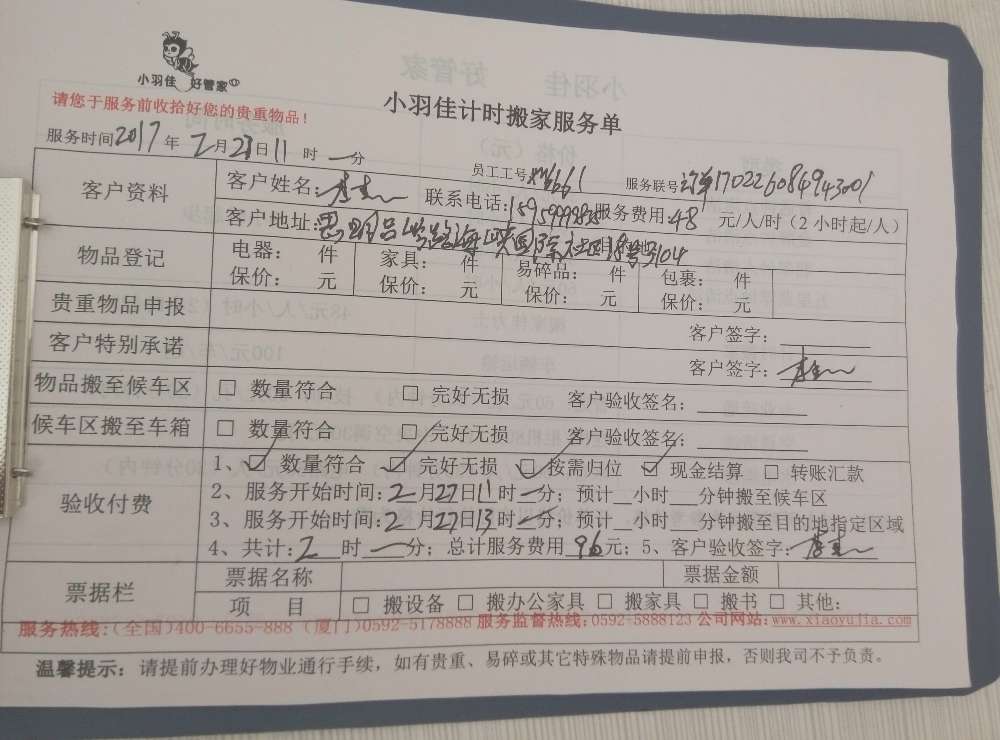 小羽佳 好管家
请您于服务前收拾好您的贵重物品!
小羽佳计时搬家服务单
服务时间2017年2月27日11时一分
员工工号 661 服务联号 订单170226084943001
客户资料 客户姓名: 联系电话: 服务费用:48 元/人/时(2小时起/人)
客户地址: 思明区 路海峡国际社区18号3104
物品登记 电器: 件 家具: 件 易碎品: 件 包裹: 件
保价: 元 保价: 元 保价: 元 保价: 元
贵重物品申报 客户签字:
客户特别承诺 客户签字:
物品搬至候车区 □ 数量符合 □ 完好无损 客户验收签名:
候车区搬至车箱 □ 数量符合 □ 完好无损 客户验收签名:
验收付费 1、☑ 数量符合 ☑ 完好无损 ☑ 按需归位 ☑ 现金结算 □ 转账汇款
2、服务开始时间:2月27日11时一分;预计 小时 分钟搬至候车区
3、服务开始时间:2月27日13时一分;预计 小时 分钟搬至目的地指定区域
4、共计:2时一分;总计服务费用96元;5、客户验收签字:
票据栏 票据名称 票据金额
项 目 □ 搬设备 □ 搬办公家具 □ 搬家具 □ 搬书 □ 其他:
服务热线:(全国)400-6655-888 (厦门)0592-5178888 服务监督热线:0592-5888123 公司网站:www.xiaoyujia.com
温馨提示:请提前办理好物业通行手续,如有贵重、易碎或其它特殊物品请提前申报,否则我司不予负责。